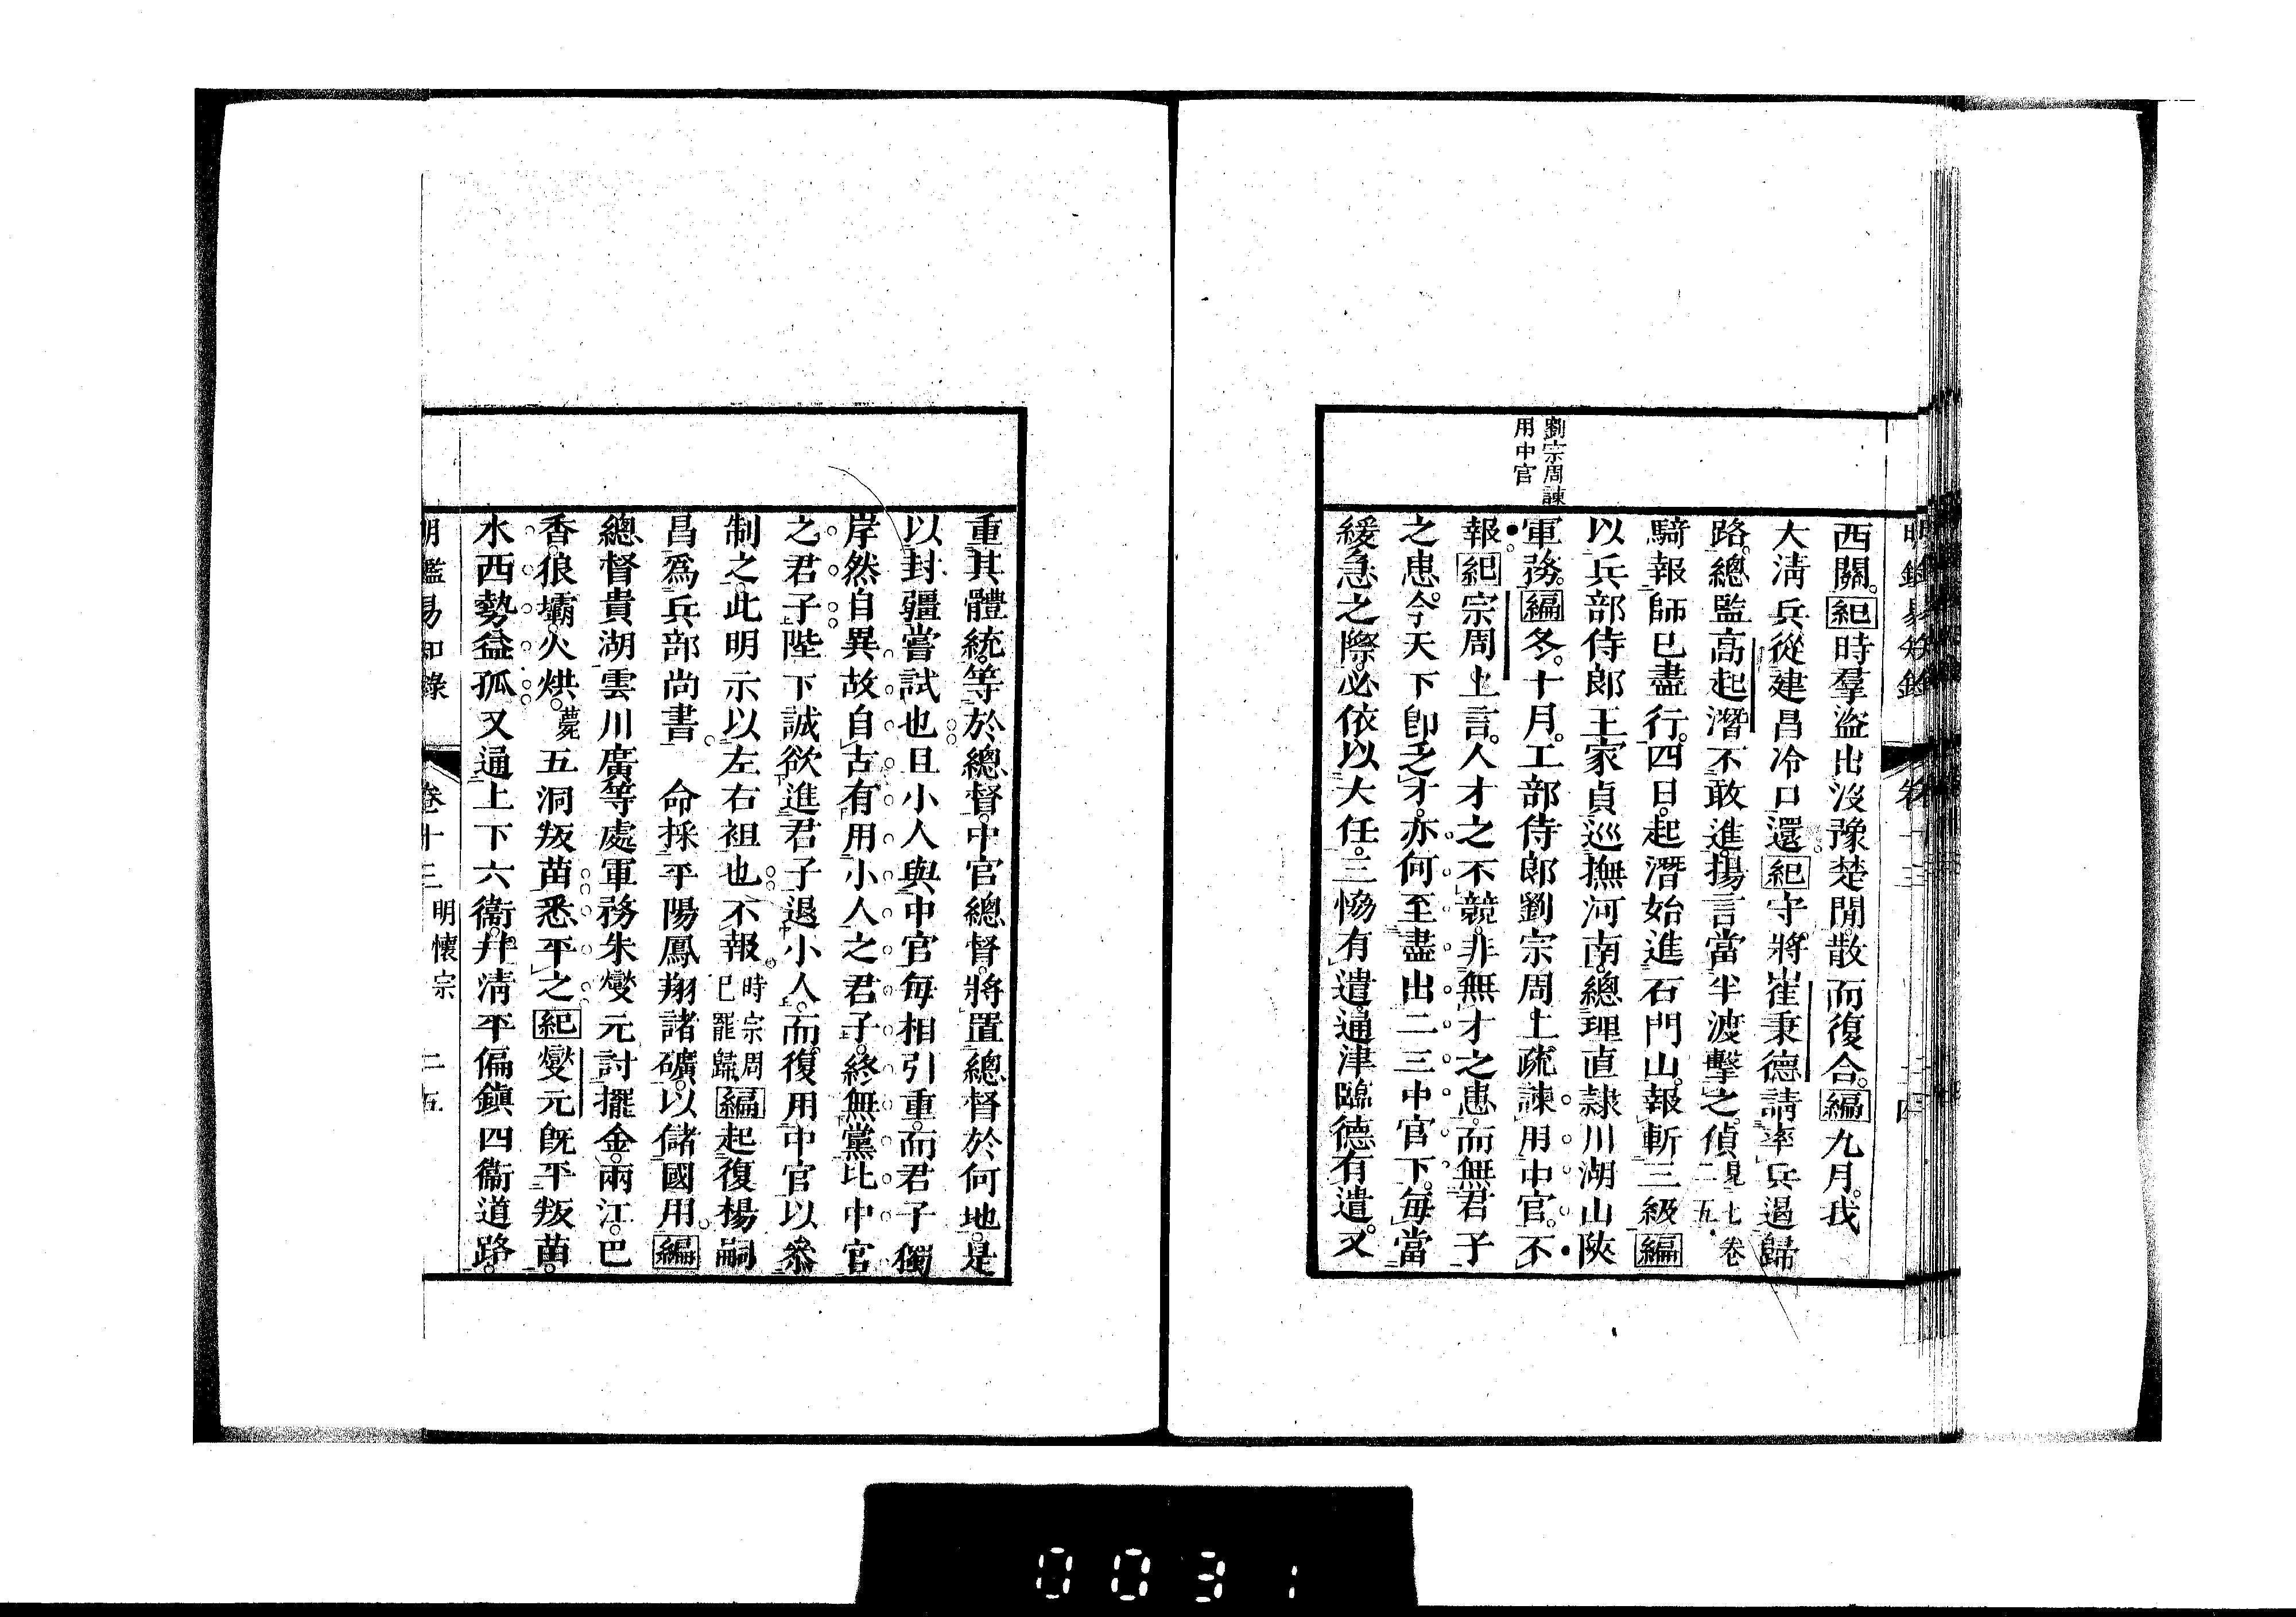 劉宗周諫
用中官
西關。紀時羣盜出沒豫楚間。散而復合。編九月。我
大淸兵從建昌冷口還紀守將崔秉德請率兵遏歸
路。總監高起潛不敢進。揚言當半渡擊之。偵見七卷二五
騎報師已盡行。四日。起潛始進石門山。報斬三級編
以兵部侍郞王家貞巡撫河南。總理直隷川湖山陜
軍務。編冬。十月。工部侍郞劉宗周上疏諫用中官。不
報紀宗周上言。人才之不競。非無才之患。而無君子
之患。今天下卽乏才。亦何至盡出二三中官下。每當
緩急之際。必依以大任。三恊有遣通津臨德有遣。又
重其體統。等於總督。中官總督。將置總督於何地。是
以封疆嘗試也且小人與中官每相引重。而君子獨
岸然自異故自古有用小人之君子。終無黨比中官
之君子陛下誠欲進君子退小人。而復用中官以叅
制之。此明示以左右袒也不報。時宗周已罷歸編起復楊嗣
昌爲兵部尚書 命採平陽鳳翔諸礦。以儲國用。編
總督貴湖雲川廣等處軍務朱燮元討擺金。兩江。巴
香。狼壩。火烘。薨五洞叛苗悉平之紀燮元旣平叛苗。
水西勢益孤又通上下六衞。幷淸平偏鎭四衞道路。
明鑑易知錄 卷十三 明懷宗 二五